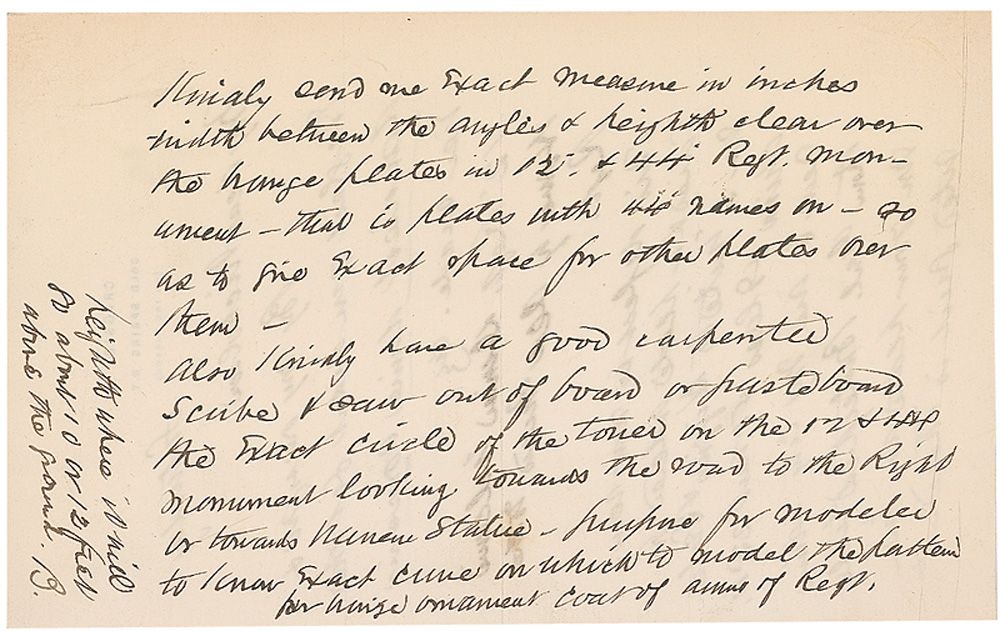 Kindly send me Exact measure in inches
width between the angles & heighth clear over
the bronze plates in 12". & 44" Regt. Mon-
ument - that is plates with 44" names on - so
as to give Exact space for other plates over
them -
Also Kindly have a good carpenter
Scribe & saw out of board or pasteboard
the Exact circle of the tower on the 12 & 44
monument looking towards the road to the Right
or towards Warren Statue - purpose for modeler
to Know Exact curve on which to model the pattern
for bronze ornament coat of arms of Regt.
heighth where is
Or about 10 or 12 feet
above the ground. B.